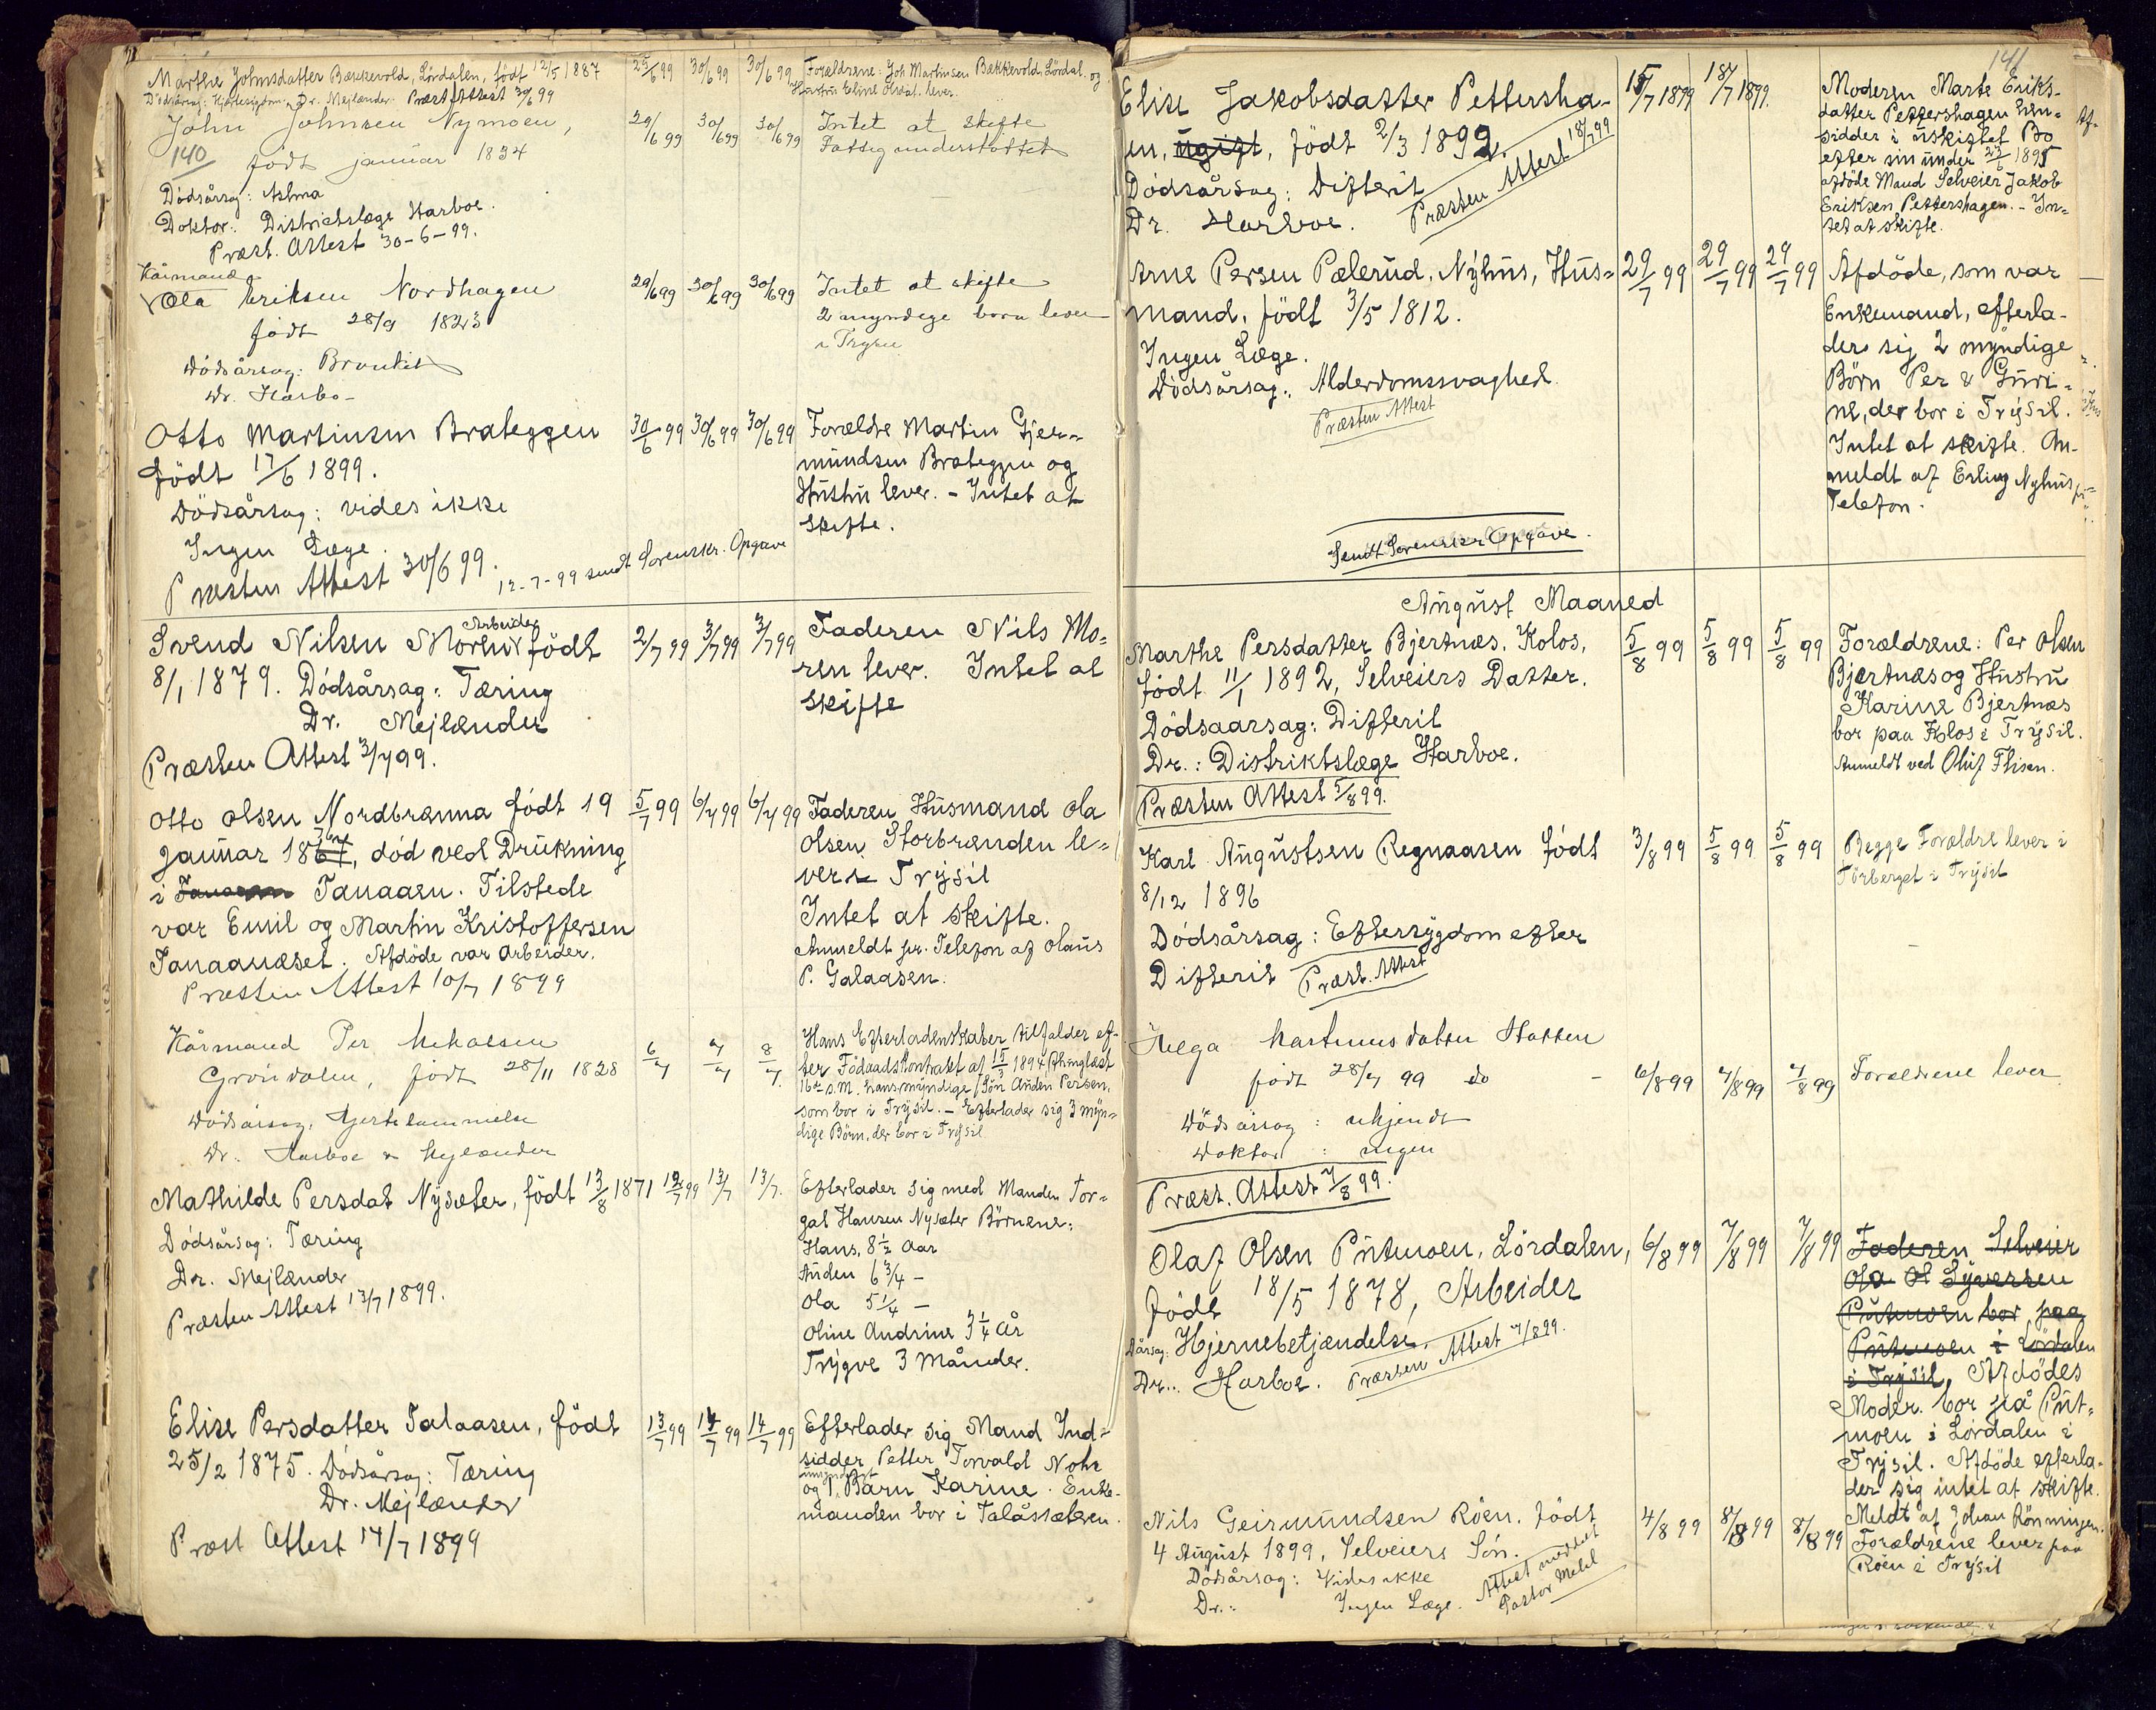 Marthe Johnsdatter Bækkevold, Lördalen, født 12/5 1887 25/6 99 30/6 99 30/6 99 Forældrene: Joh Martinsen Bækkevold, Lördal. og
Dödsårsag: Hjertesygdom. Dr. Mejlænder. Præst. Attest 30/6 99 Hustru Eline Olsdat. lever.
John Johnsen Nymoen, 29/6 99 30/6 99 30/6 99 Intet at skifte
140 født januar 1834 Fattigunderstøttet
Dödsårsag: Astma
Doktor: Distriktslæge Harboe.
Præst. Attest 30-6-99.
Kårmand
Ola Eriksen Nordhagen 29/6 99 30/6 99 30/6 99 Intet at skifte
født 28/9 1823 2 myndige born lever
i Trysil
Dödsårsag: Bronkit
Dr. Harbo-
Otto Martinsen Brateggen 30/6 99 30/6 99 30/6 99 Forældre Martin Gjer-
födt 17/6 1899. mundsen Brateggen og
Dödsårsag: vides ikke Hustru lever. - Intet at
Ingen Læge. skifte.
Præsten Attest 30/6 99. 12-7-99 sendt Sorenskr. Opgave
Arbeider
Svend Nilsen Moren födt 2/7 99 3/7 99 3/7 99 Faderen Nils Mo-
8/1 1879. Dödsårsag: Tæring ren lever. Intet at
Dr. Mejlænder skifte
Præsten Attest 3/7 99.
Otto Olsen Nordbrænna födt 19 5/7 99 6/7 99 6/7 99 Faderen Husmand Ola
Januar 1867, död ved Drukning Olsen Storbrænden le-
i Tanaaen. Tilstede ver i Trysil
var Emil og Martin Kristoffersen Intet at skifte.
Tanaanæset. Afdöde var Arbeider. Anmeldt pr. Telefon af Olaus
Præsten Attest 10/7 1899 P. Galaasen.
Kårmand Per Mikalsen 6/7 7/7 8/7 Hans Efterladenskaber tilfalder ef-
Gröndalen, født 28/11 1828 ter Födaadskontrakt af 15/3 1894, thinglæst
16de s.M. hans myndige Sön Auden Persen,
Dödsårsag, Hjertelammelse som bor i Trysil. - Efterlader sig 3 myn-
Dr. Harboe & Mejlænder dige Börn, der bor i Trysil
Mathilde Persdat Nysæter, födt 13/8 1871 12/7 99 13/7 13/7. Efterlader sig med Manden Tor-
Dödsårsag: Tæring gal Hansen Nysæter Börnene:
Dr. Mejlænder Hans, 8½ Aar
Præsten Attest 13/7 1899. Auden 6¾ -
Ola 5¼ -
Oline Andrine 3¼ År
Trygve 3 Måneder.
Elise Persdatter Talaasen, födt 13/7 99 14/7 99 14/7 99 Efterlader sig Mand Ind-
25/2 1875. Dödsårsag: Tæring sidder Petter Torvald Nohr
Dr. Mejlænder og 1 umyndigt Barn Karine. Enke-
Præst Attest 14/7 1899 manden bor i Talåssæteren.
141
Elise Jakobsdatter Pettersha- 15/7 1899 18/7 1899. Moderen Marte Eriks-
en, ugift, födt 2/3 1892. datter Pettershagen hen-
Dödsårsag: Difterit sidder i uskiftet Bo
Dr. Harboe. Præsten Attest 18/7 99 efter sin under 23/2 1895
afdöde Mand Selveier Jakob
Eriksen Pettershagen. - In-
tet at skifte.
Arne Persen Pælerud, Nyhus, Hus- 29/7 99 29/7 99 29/7 99 Afdöde, som var
mand, födt 3/5 1812. Enkemand, efterla-
Ingen Læge. der sig 2 myndige
Dödsårsag: Alderdomssvaghed. Börn Per & Guri-
Præsten Attest ne, der bor i Trysil.
Intet at skifte. An-
meldt af Erling Nyhus pr.
Telefon.
Sendt Sorenskr Opgave.
August Maaned
Marthe Persdatter Bjertnæs, Kolos, 5/8 99 5/8 99 5/8 99 Forældrene: Per Olsen
födt 11/1 1892, Selveiers Datter. Bjærtnæs og Hustru
Dödsaarsag: Difterit Karine Bjertnæs
Dr.: Distriktslæge Harboe. bor paa Kolos i Trysil.
Præsten Attest 5/8 99. Anmeldt ved Oluf Flisen.
Karl Augustsen Regnaasen födt 3/8 99 5/8 99 5/8 99 Begge Forældre lever i
8/12 1896 Törberget i Trysil
Dödsårsag: Eftersygdom efter
Difterit Præst. Attest
Helga Martinusdatter Hatten
født 28/7 99 do - 6/8 99 7/8 99 7/8 99 Forældrene lever
Dödsårsag: ukjendt
Doktor: ingen
Præst. Attest 7/8 99.
Olaf Olsen Putmoen, Lördalen, 6/8 99 7/8 99 7/8 99 Faderen Selveier
födt 18/5 1878, Arbeider Ola Ol Syversen
Dårsag: Hjernebetjændelse. Putmoen bor paa
Dr.. Harboe. Præsten Attest 7/8 99. Putmoen i Lördalen
i Trysil. Afdödes
Moder bor på Put-
moen i Lördalen i
Trysil. Afdöde efterla-
der sig intet at skifte.
Meldt af Johan Rönningen.
Nils Geirmundsen Röen. födt 4/8 99 8/8 99 8/8 99 Forældrene lever paa
4 August 1899, Selveiers Sön. Röen i Trysil
Dödsårsag: Vides ikke
Dr.: Ingen Læge. Attest meddelt
Pastor